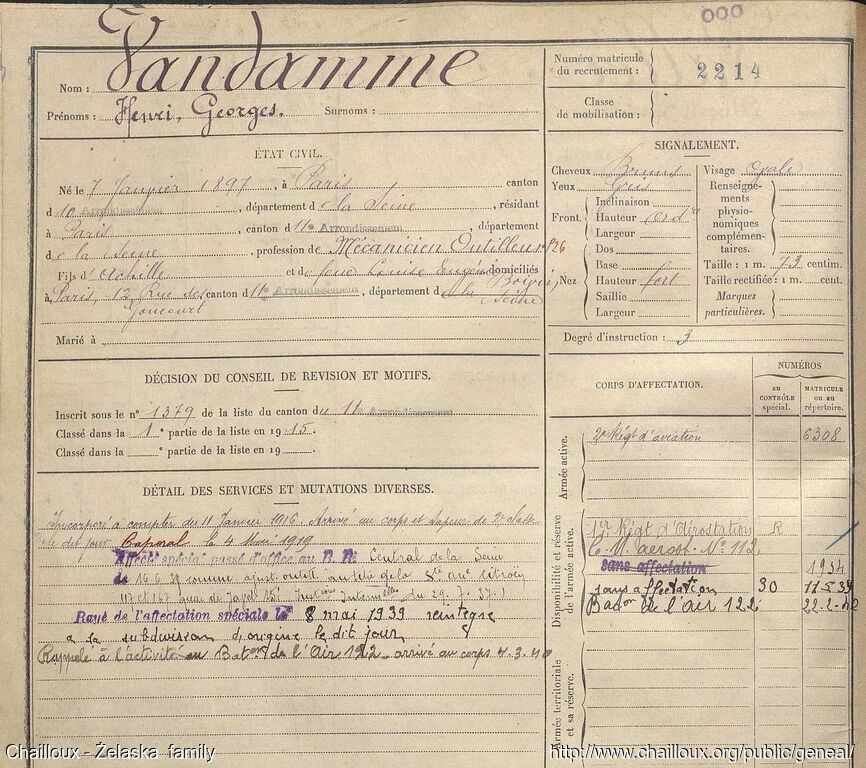 000
Nom : Vandamme
Prénoms : Henri, Georges. Surnoms :
Numéro matricule
du recrutement : 2214
Classe
de mobilisation :
ÉTAT CIVIL.
Né le 7 Janvier 1897, à Paris canton
d 10e Arrondissement, département de la Seine, résidant
à Paris, canton d 11e Arrondissement, département
de la Seine, profession de Mécanicien Outilleur P26
Fils d'Achille et de feue Louise Eugénie Boivin, domiciliés
à Paris, 12, Rue de Goncourt, canton d 11e Arrondissement, département de la Seine
Marié à
SIGNALEMENT.
Cheveux Bruns Visage ovale
Yeux Gris Renseigne-
ments
physio-
nomiques
complémen-
taires.
Front. Inclinaison
Hauteur ordre
Largeur
Nez Dos
Base
Hauteur fort
Saillie
Largeur
Taille : 1 m. 73 centim.
Taille rectifiée : 1 m. cent.
Marques
particulières.
Degré d'instruction : 3
DÉCISION DU CONSEIL DE REVISION ET MOTIFS.
Inscrit sous le n° 1379 de la liste du canton du 11e Arrondissement
Classé dans la 1e partie de la liste en 1915.
Classé dans la e partie de la liste en 19 .
CORPS D'AFFECTATION.
NUMÉROS
au
CONTRÔLE
spécial.
MATRICULE
ou au
répertoire.
Armée active.
2e Régt d'aviation 6308
Disponibilité et réserve
de l'armée active.
1er Régt d'Aérostation R
C. M. aérost. No 112
sans affectation 1934
sans affectation 30 11-5-39
Baton de l'air 122 22-2-40
Armée territoriale
et sa réserve.
DÉTAIL DES SERVICES ET MUTATIONS DIVERSES.
Incorporé à compter du 11 Janvier 1916. Arrivé au corps et sapeur de 2e classe
le dit jour. Caporal le 4 Mai 1919
Affecté spécial passé d'office au B. R. Central de la Seine
Rayé de l'affectation spéciale le 8 mai 1939 réintégré
a sa subdivision d'origine le dit jour
Rappelé à l'activité au Baton de l'Air 122 arrivé au corps 4.3.40
Chailloux - Żelaska family
http://www.chailloux.org/public/geneal/